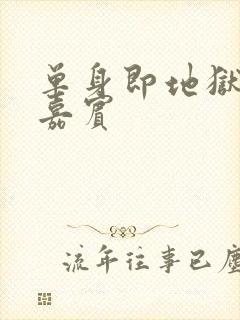 单身即地獄
嘉賓
流年往事已塵